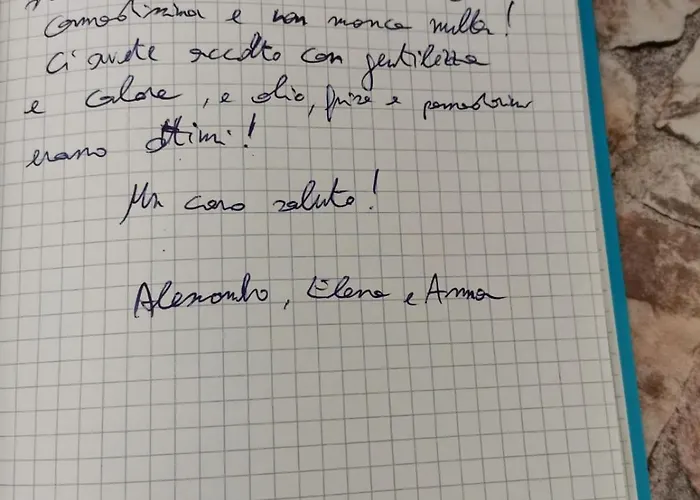 comodissima e non manca nulla!
Ci avete accolto con gentilezza
e calore, e olio, frise e pomodorini
erano ottimi!
Un caro saluto!
Alessandro, Elena e Anna